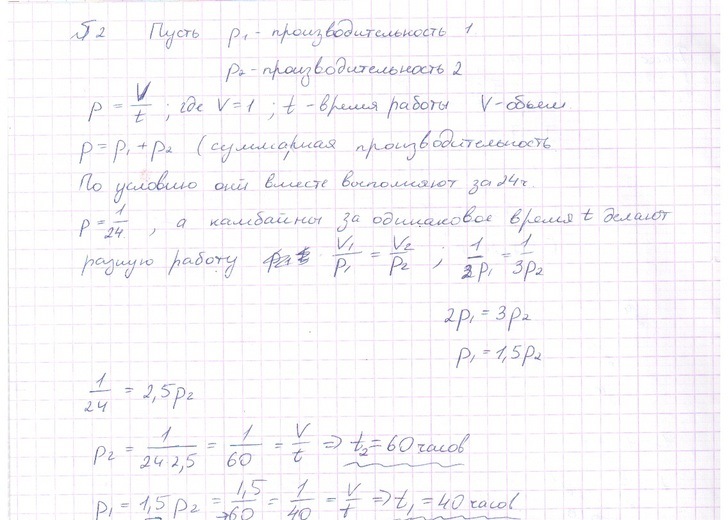 №2 Пусть p₁ - производительность 1
p₂ - производительность 2
p = V/t ; где V=1 ; t - время работы V - объем
p = p₁ + p₂ (суммарная производительность
По условию они вместе выполняют за 24ч.
p = 1/24 , а комбайны за одинаковое время t делают
разную работу V₁/p₁ = V₂/p₂ ; 1/2p₁ = 1/3p₂
2p₁ = 3p₂
p₁ = 1,5p₂
1/24 = 2,5p₂
p₂ = 1/24·2,5 = 1/60 = V/t ⇒ t₂ = 60 часов
p₁ = 1,5 p₂ = 1,5/60 = 1/40 = V/t ⇒ t₁ = 40 часов